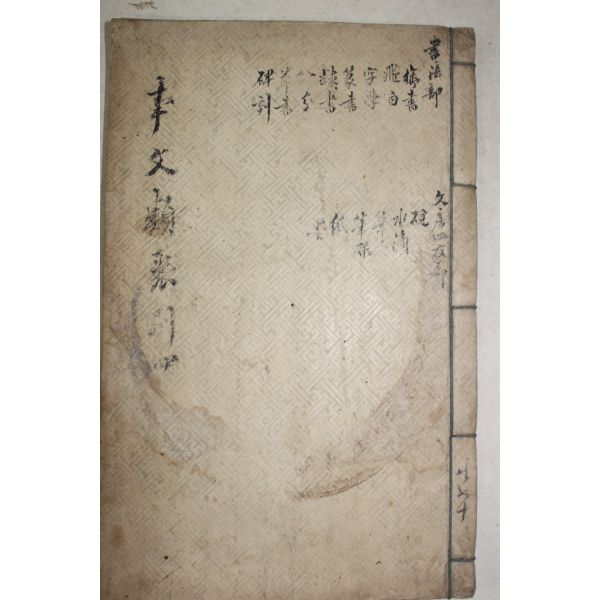 書法部
飛白
字學
篆書
隷書
八分
草書
碑刻
文房四友部
硯
水滴
筆架
紙
事文類聚別四
共六十